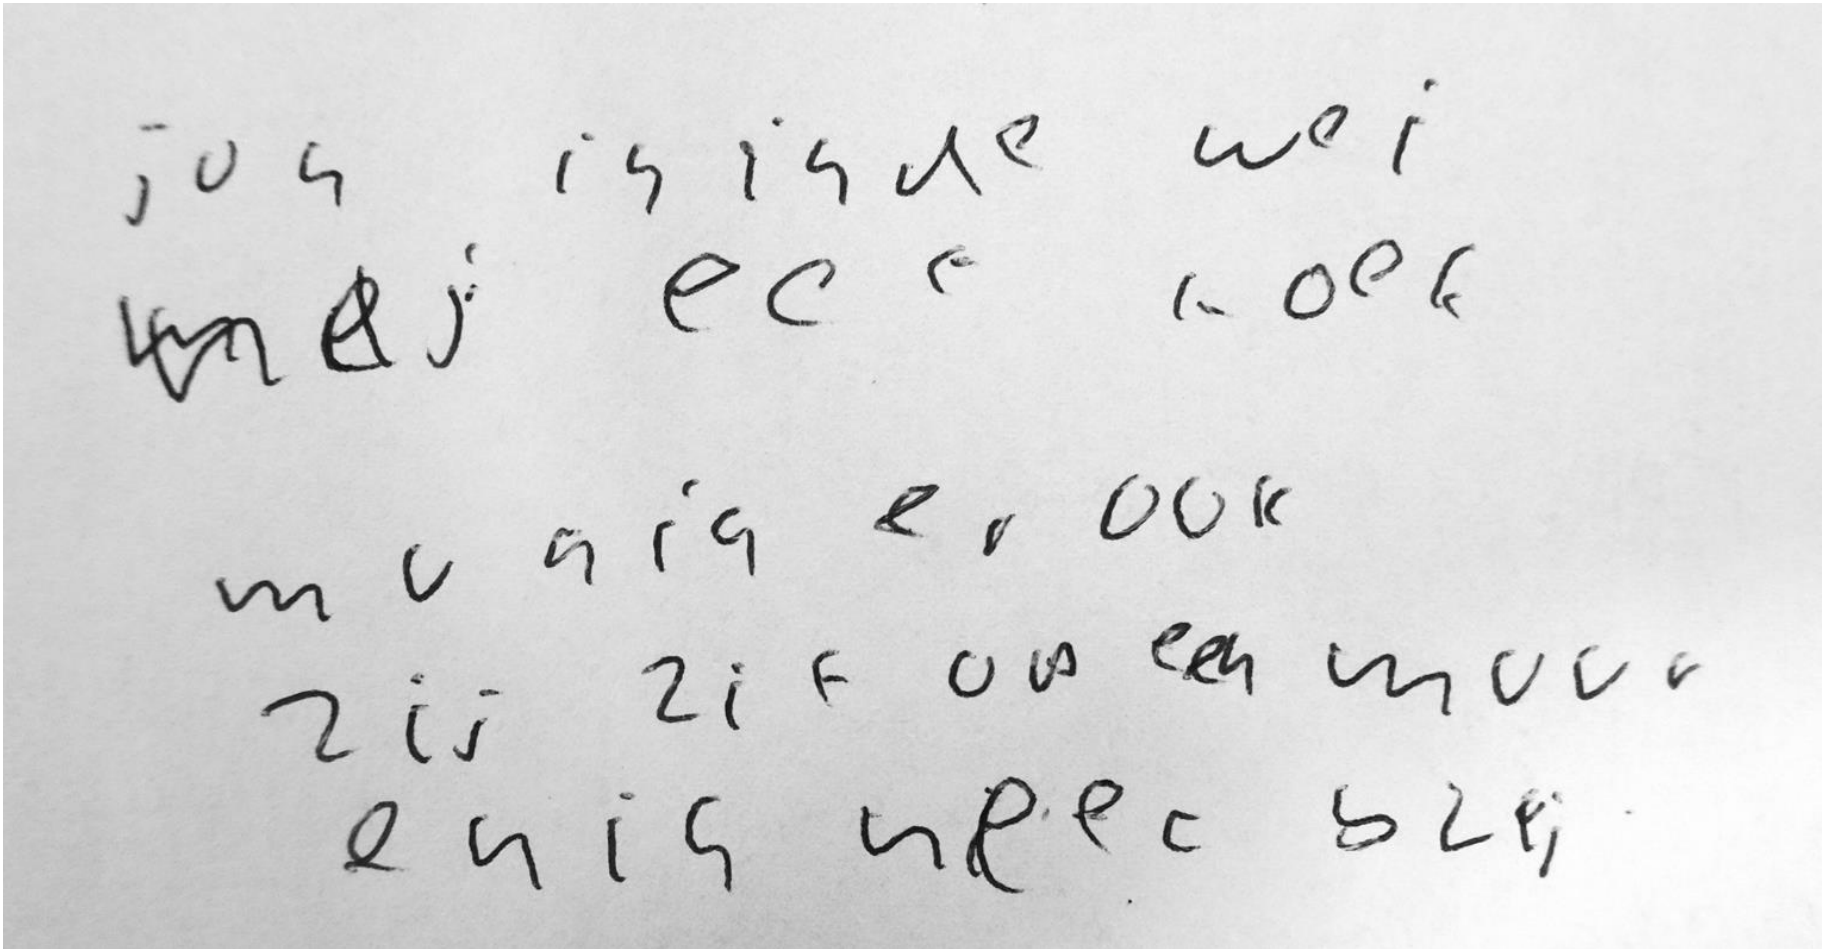 jon is in de wei
hij eet koek
maan is er ook
zij zit op een muur
en is heel blij